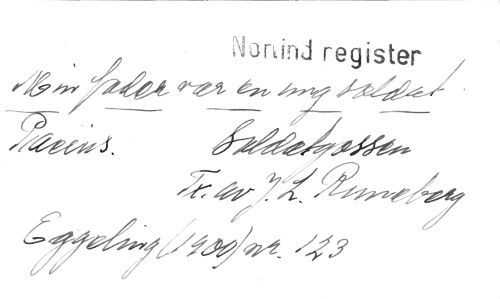 Nordind register
Min fader var en ung soldat
Pacius. Soldatgossen
Tx. av J. L. Runeberg
Eggeling (1909) nr. 123